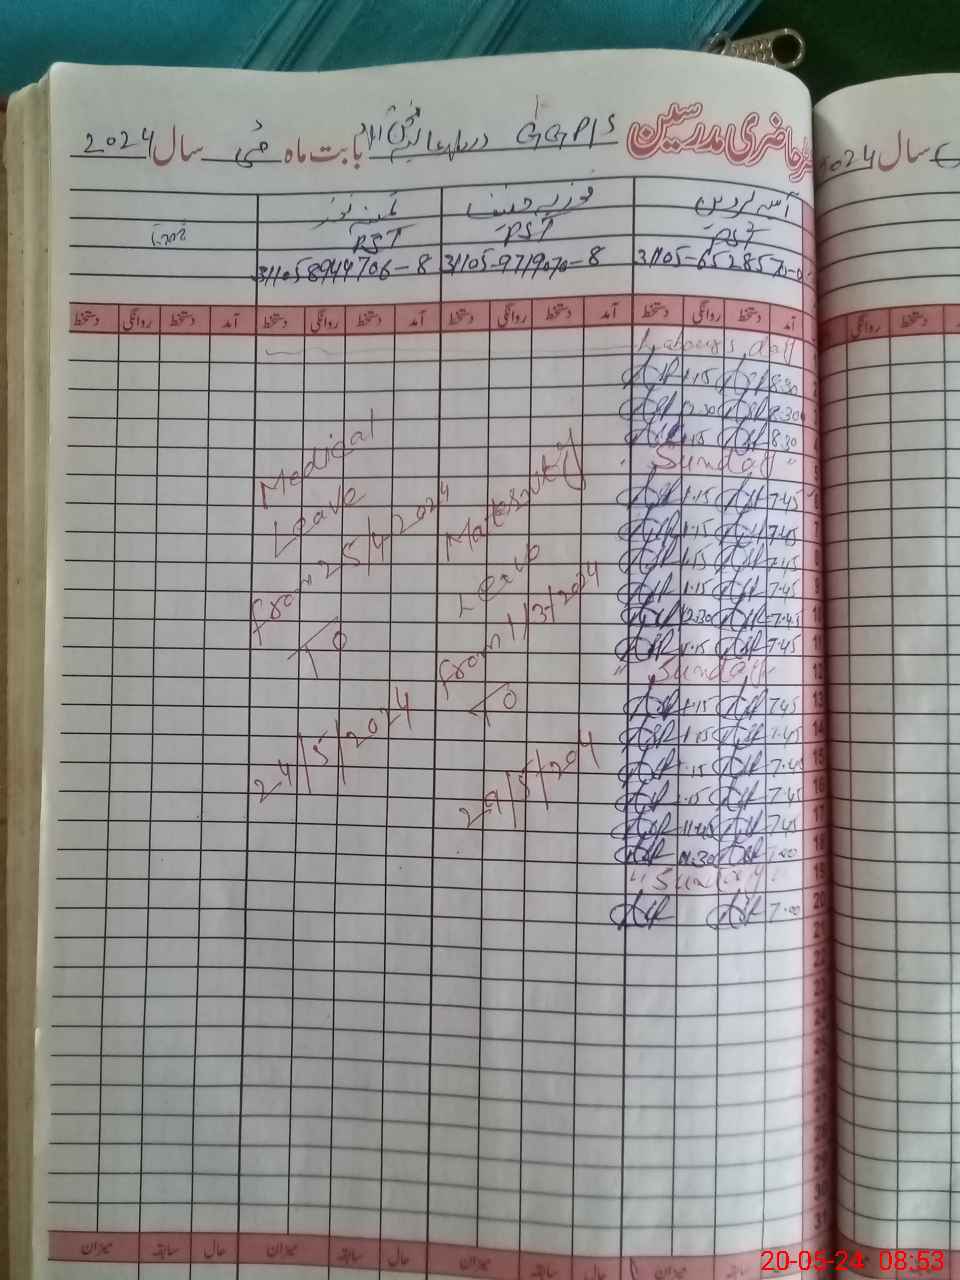 رجسٹر حاضری مدرسین GGP/S بابت ماہ مئی سال 2024
فوزیہ حنیف
PST PST PST
31105-9719070-8 31105 8944706-8
آمد دستخط روانگی دستخط آمد دستخط روانگی دستخط آمد دستخط روانگی دستخط آمد دستخط روانگی دستخط
Labour's day
1.15 8.30
12.30 8.30
1.15 8.30
"Sunday"
1.15 7.45
1.15 7.45
1.15 7.45
1.15 7.45
12.30 7.45
1.15 7.45
"Sunday"
1.15 7.45
1.15 7.45
1.15 7.45
1.15 7.45
11.45 7.45
11.30 7.00
"Sunday"
7.00
Maternity
Leave
from 1/3/2024
TO
29/5/204
Medical
Leave
from 25/4/2024
TO
24/5/2024
12
13
14
15
16
17
18
19
20
21
22
23
24
29
30
31
حال سابقہ میزان حال سابقہ میزان
سال 2024
دستخط روانگی
20-05-24 08:53